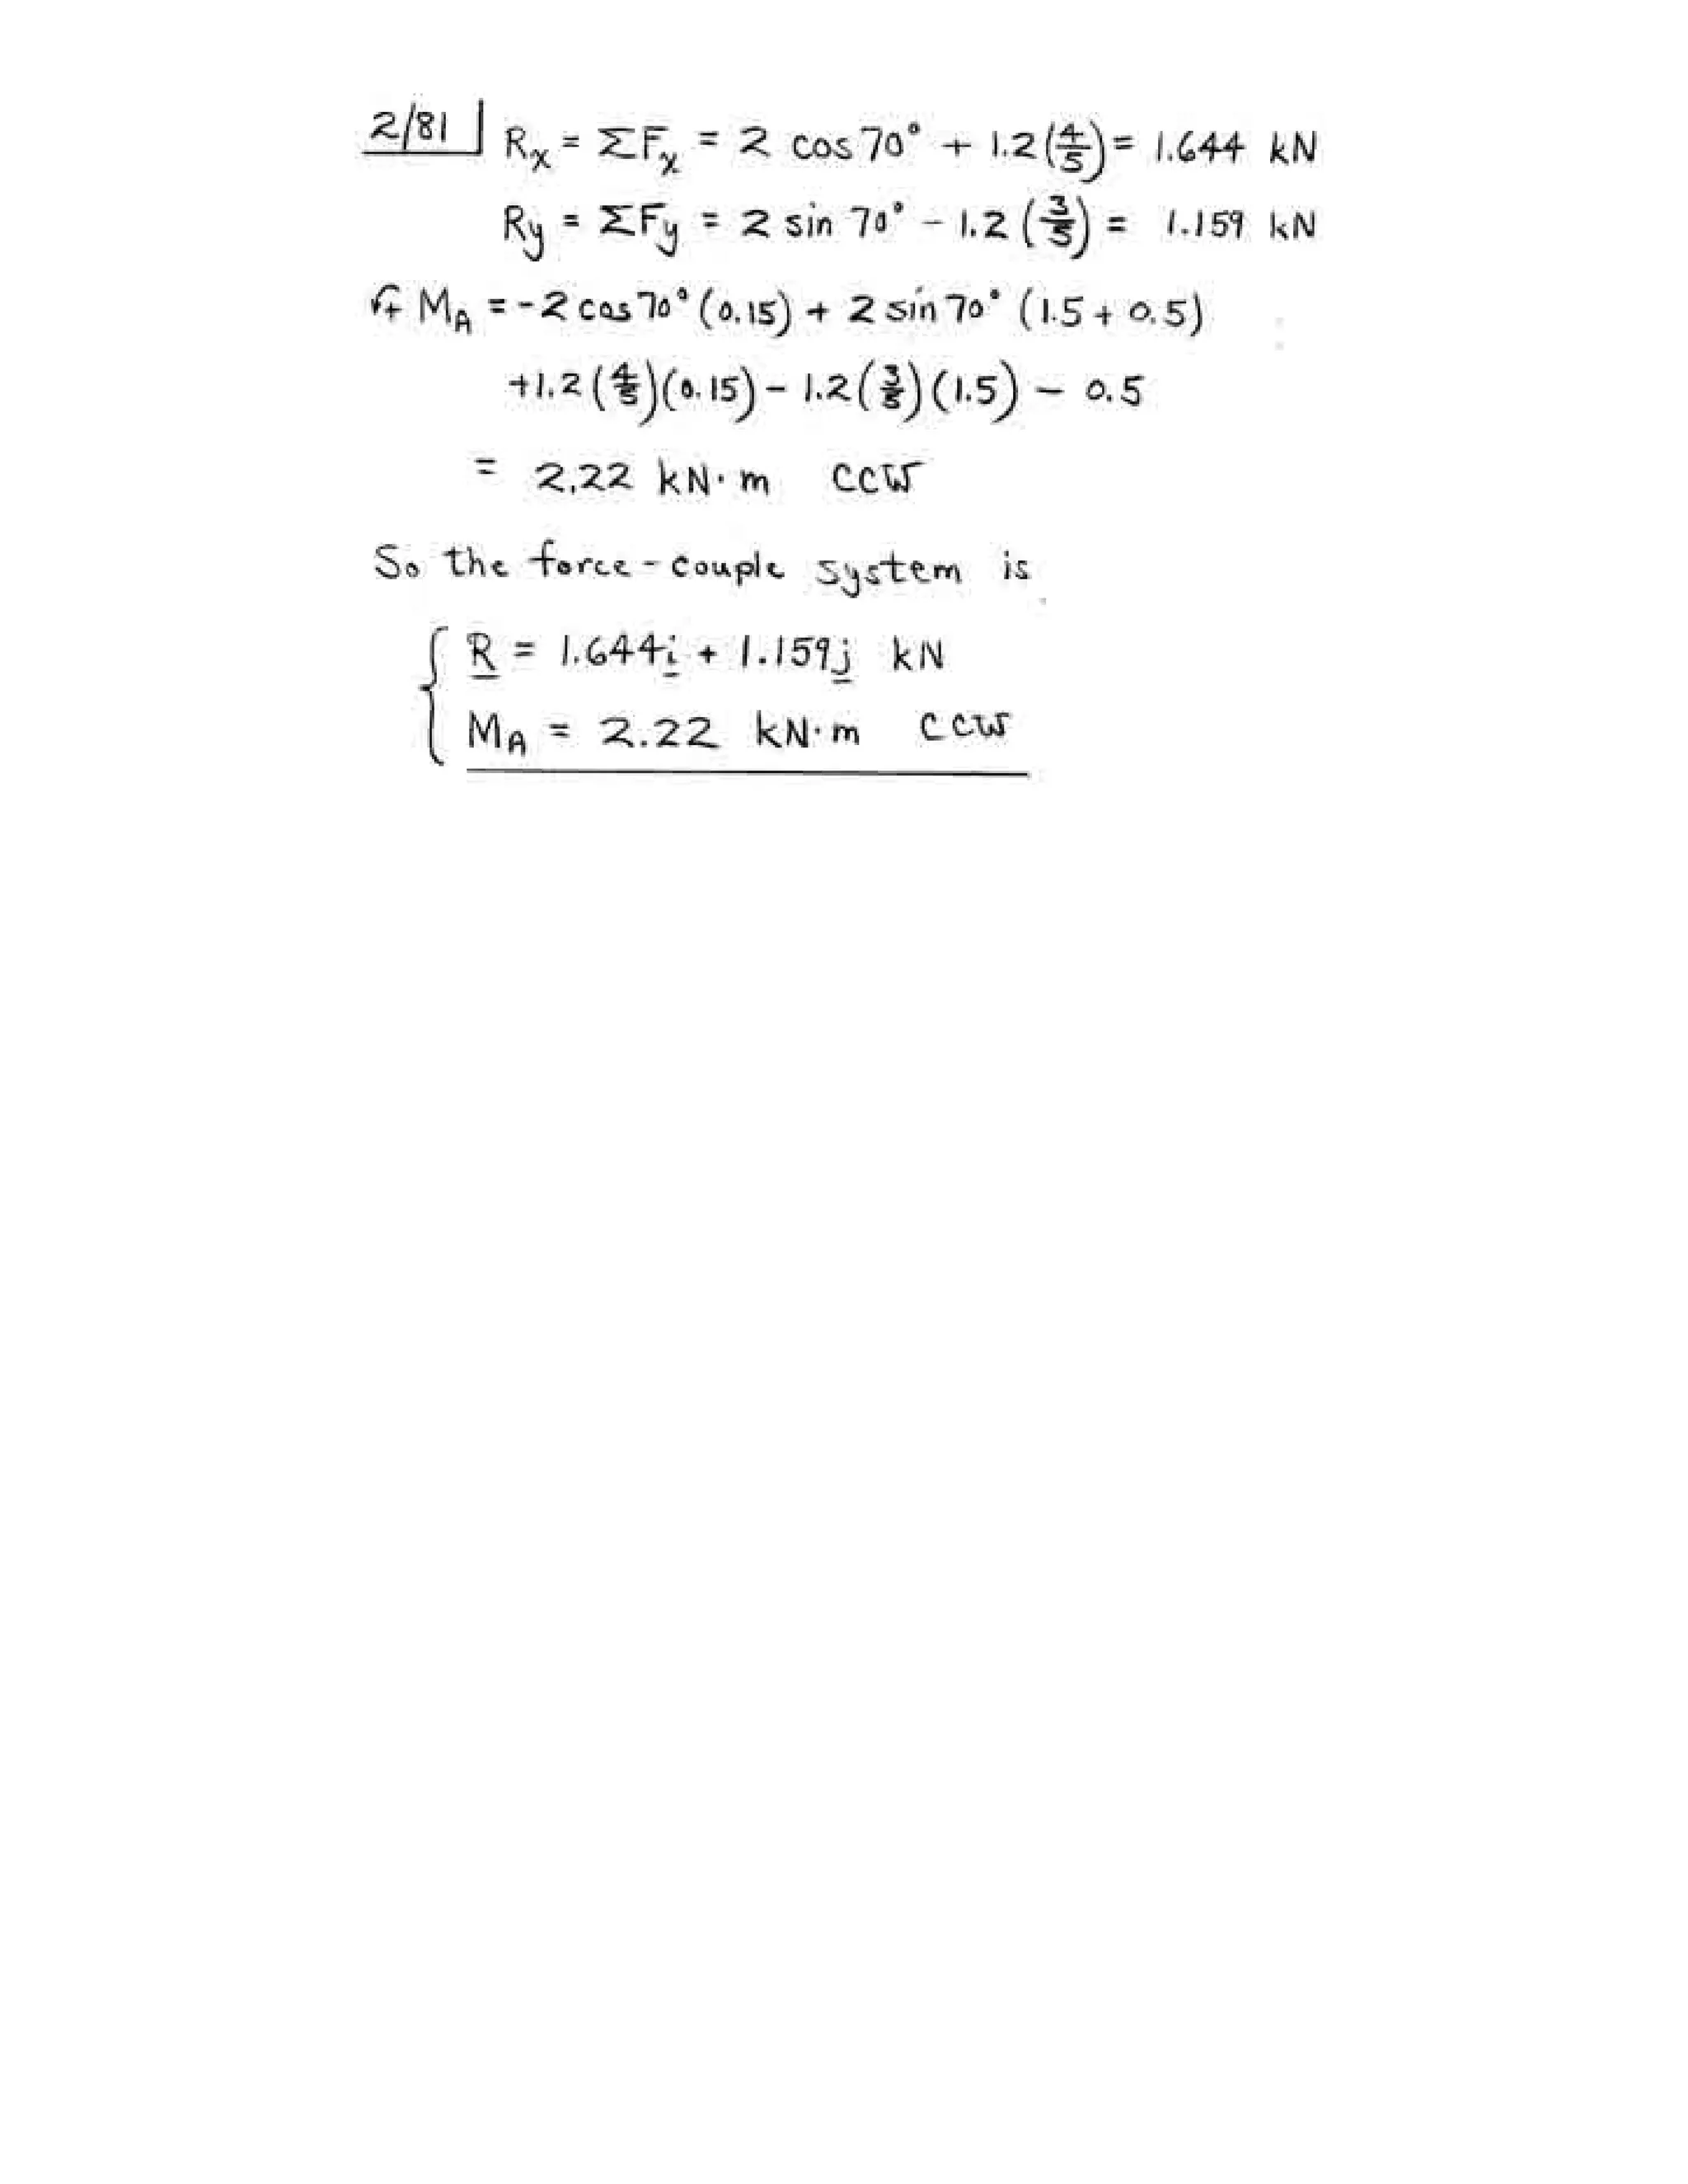 2/81 Rx = ΣFx = 2 cos 70° + 1.2(4/5) = 1.644 kN
Ry = ΣFy = 2 sin 70° - 1.2(3/5) = 1.159 kN
↶+ MA = -2 cos 70° (0.15) + 2 sin 70° (1.5 + 0.5)
+1.2(4/5)(0.15) - 1.2(3/5)(1.5) - 0.5
= 2.22 kN·m CCW
So the force-couple system is
R = 1.644i + 1.159j kN
MA = 2.22 kN·m CCW